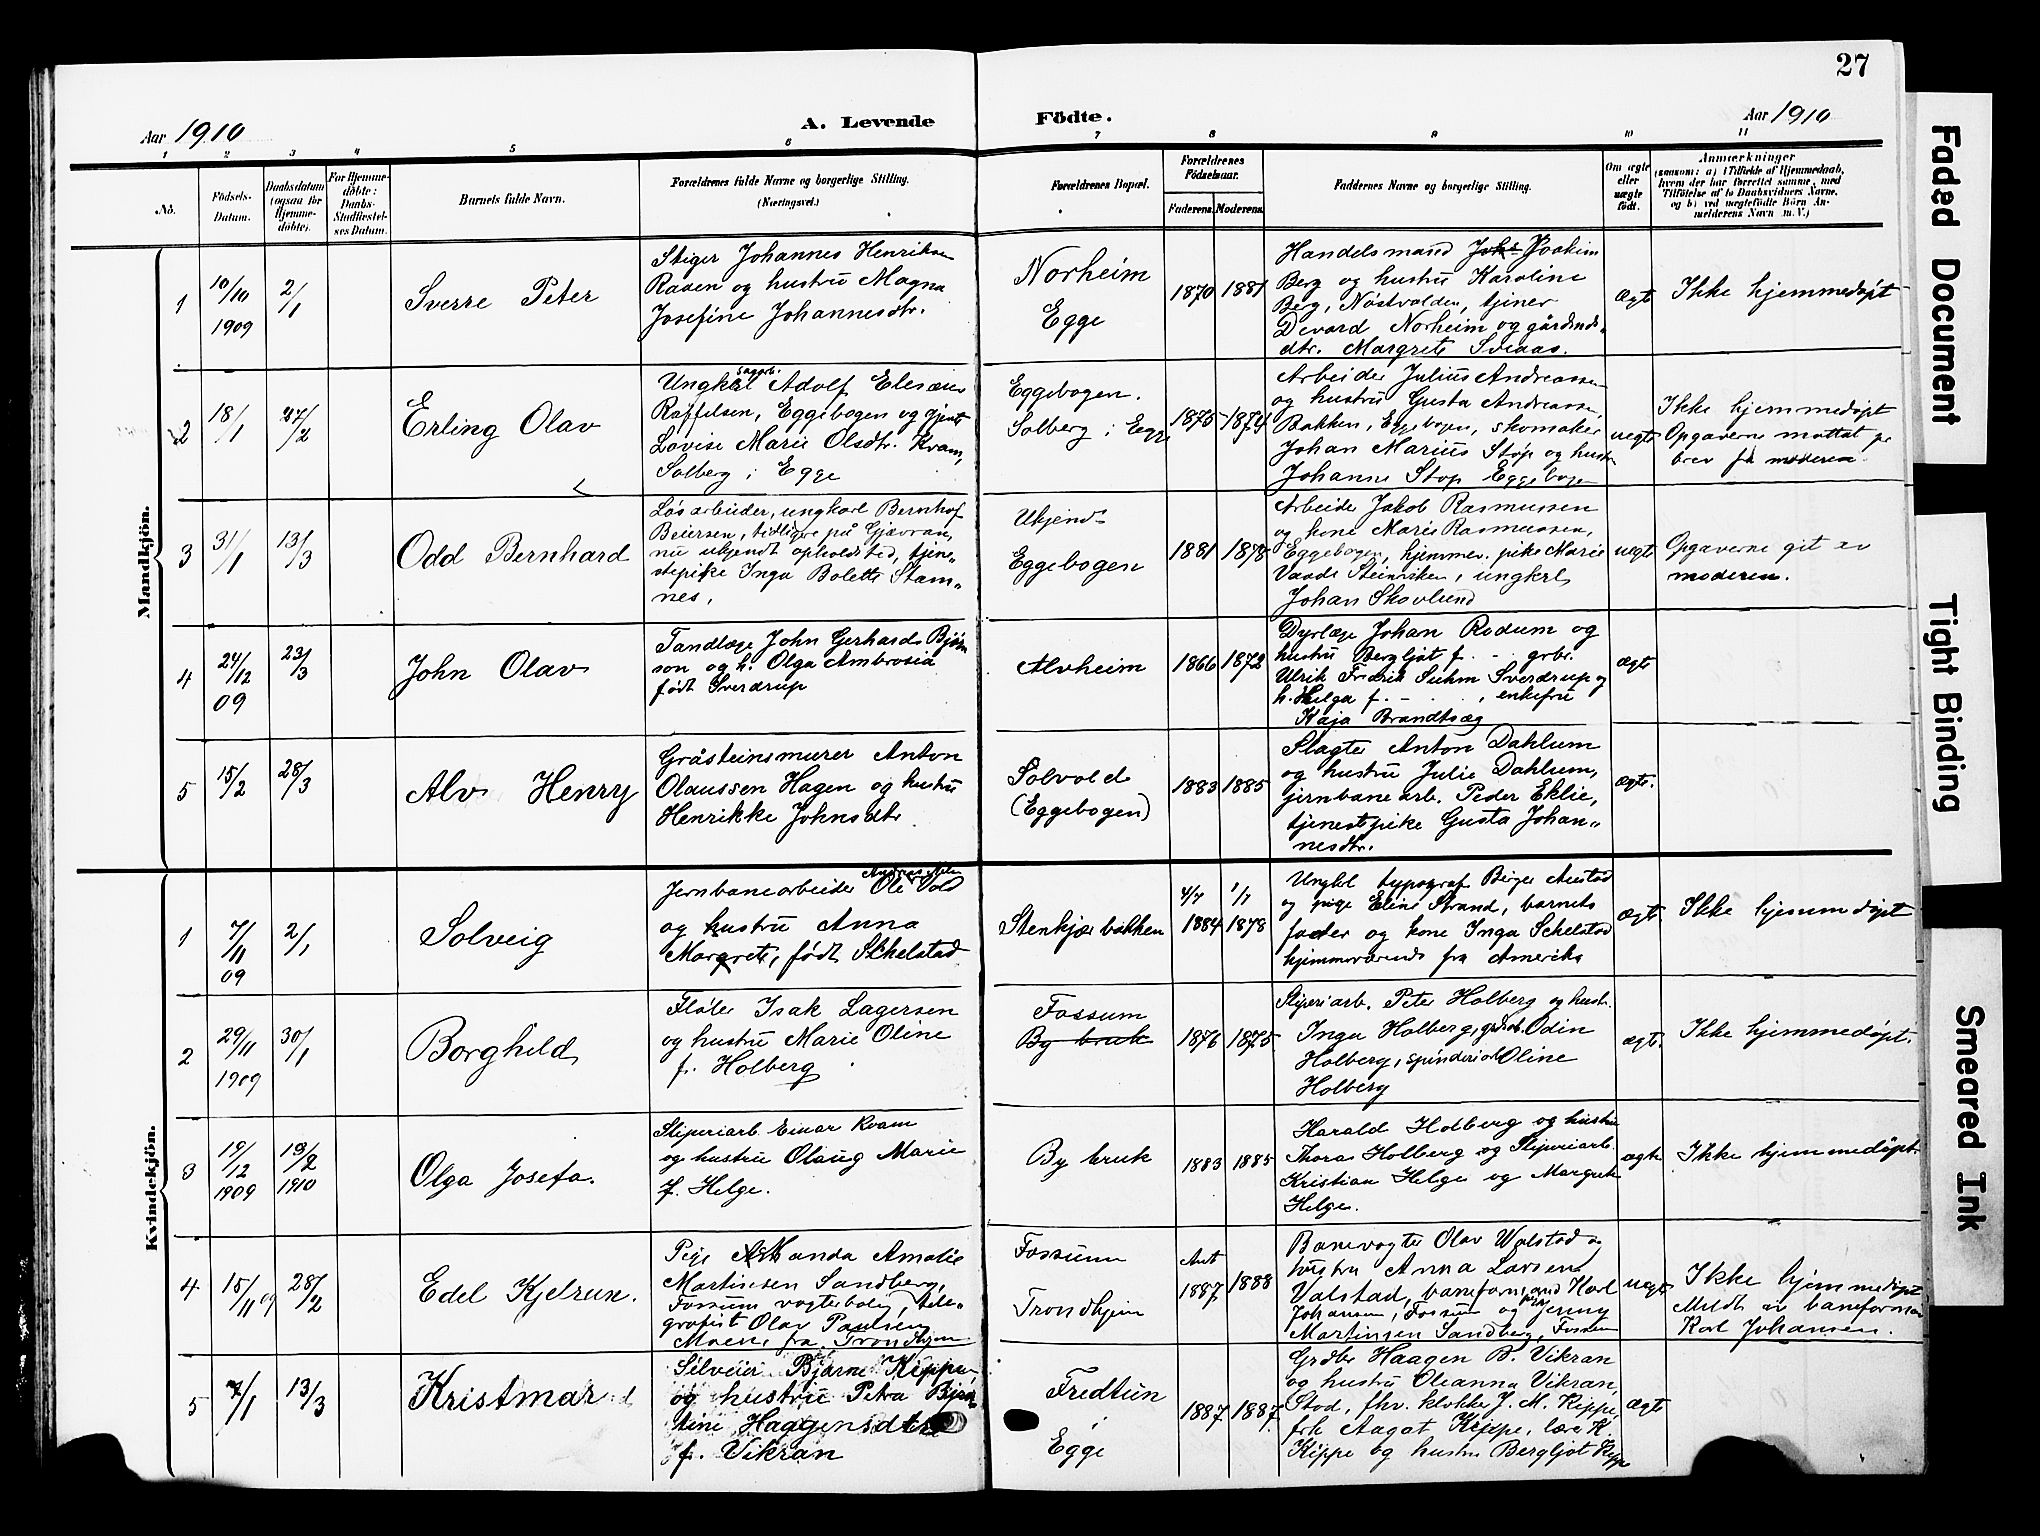 27
Aar 1910
A. Levende
Födte.
Aar 1910
1 2 3 4 5 6 7 8 9 10 11
No.
Födsels-Datum.
Daabsdatum (ogsaa for Hjemme-döbte).
For Hjemme-döbte: Daabs-Stadfæstel-ses Datum.
Barnets fulde Navn.
Forældrenes fulde Navne og borgerlige Stilling.
(Næringsvei.)
Forældrenes Bopæl.
Forældrenes Födselsaar.
Faderens. Moderens.
Faddernes Navne og borgerlige Stilling.
Om ægte eller uægte födt.
Anmærkninger
(saasom: a) i Tilfælde af Hjemmedaab, hvem der har forrettet samme, med Tilföielse af to Daabsvidners Navne, og b) ved uægtefödte Börn Anmelderens Navn m. V.)
Mandkjön.
1
10/10 1909
2/1
Sverre Peter
Stiger Johannes Henriksen
Raaen og hustru Magna
Josefine Johannesdtr.
Norheim
Egge
1870 1881
Handelsmand Joakim
Berg og hustru Karoline
Berg, Nöstvolden, tjener
Devard Norheim og gårdmds.
dtr. Margrete Sveaas.
Ægt
Ikke hjemmedøpt
2
18/1
27/2
Erling Olav
Ungkarl sagarb. Adolf Elesæus
Raffelsen, Eggebogen og gjente
Lovise Marie Olsdtr. Kvam,
Solberg i Egge
Eggebogen.
Solberg i Egge
1875 1874
Arbeider Julius Andreassen
og hustru Gusta Andreassen,
Bakken, Eggebogen, skomaker
Johan Marius Støp og hustru
Johanne Støp Eggebogen
uegt
Ikke hjemmedøpt
Opgaverne mottat pr
brev fra moderen.
3
31/1
13/3
Odd Bernhard
Løsarbeider, ungkarl Bernhof
Beiersen, tidligere på Gjævran,
nu ukjendt opholdsted, tjen-
stepike Inga Bolette Stam-
nes.
Ukjend
Eggebogen
1881 1878
Arbeider Jakob Rasmussen
og kone Marie Rasmussen,
Eggebogen, hjemmev. pike Marie
Vaade Steinviken, ungkarl
Johan Skovlund
uegt
Opgaverne git av
moderen.
4
24/12 09
23/3
John Olav
Tandlæge John Gerhard Bjørn
son og h. Olga Ambrosia
født Sverdrup
Alvheim
1866 1872
Dyrlæge Johan Rodum og
hustru Bergljot f. - - grbr.
Ulrik Fredrik Suhm Sverdrup og
h. Helga f. - - , enkefru
Kaja Brandtsæg
ægt
5
15/2
28/3
Alv Henry
Gråsteinsmurer Anton
Olaussen Hagen og hustru
Henrikke Johnsdtr
Solvold
(Eggebogen)
1883 1885
Slagter Anton Dahlum
og hustru Julie Dahlum,
jernbanearb. Peder Eklie,
tjenestepike Gusta Johan-
nesdtr.
ægt.
Kvindekjön.
1
7/11 09
2/1
Solveig
Jernbanearbeider Ole Vold
og hustru Anna
Margrete, født Schelstad
Stenkjærbakken
4/7 1884 1/7 1878
Ungkl typograf Birger Aunstad
og pige Eline Strand, barnets
fader og kone Inga Schelstad
hjemmeværende fra Amerika
ægt.
Ikke hjemmedøpt
2
29/11 1909
30/1
Borghild
Fløter Isak Lagersen
og hustru Marie Oline
f. Holberg
Fossum
By bruk
1876 1875
Sliperiarb. Peter Holberg og hustr.
Inga Holberg, Odin
Holberg, spinderiarb Oline
Holberg
ægt.
Ikke hjemmedøpt.
3
19/12 1909
13/2 1910
Olga Josefa.
Sliperiarb. Einar Kvam
og hustru Olaug Marie
f. Helge.
By bruk
1883 1885
Harald Holberg og hustru
Thora Holberg og Sliperiarb.
Kristian Helge og Margrete
Helge.
ægte
Ikke hjemmedøpt.
4
15/11 09
28/2
Edel Kjelrun.
Pige Amanda Amalie
Martinsen Sandberg,
Fossum vogterbolig, tele-
grafist Olav Paulsen
Moen, fra Trondhjem
Fossum
Trondhjem
Ant 1887 1888
Banevogter Olav Walstad og
hustru Anna Larsen
Valstad, baneformand Karl
Johansen, Fossum og Jenny
Martinsen Sandberg, Fossum
uegt
Ikke hjemmedøpt
Meldt av baneforman
Karl Johansen.
5
7/1
13/3
Kristmar
Bjarne Kippe,
og hustru Petra Bjer
tine Haagensdtr
f. Vikran
Fredtun
i
Egge
1887. 1887.
Grdbr Haagen B. Vikran
og hustru Oleanna Vikran,
Stod, fhv. klokker J. M. Kippe,
frk Aagot Kippe, lærer K.
Kippe og hustru Bergljot Kippe
ægt
Faded Document
Tight Binding
Smeared Ink